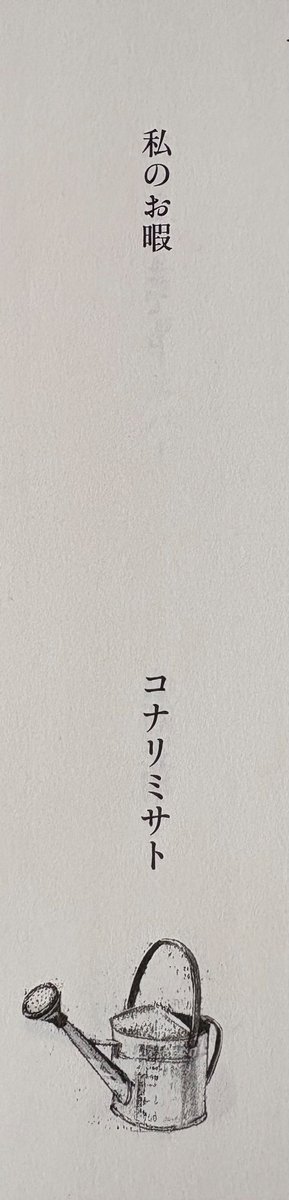 私のお暇
コナリミサト